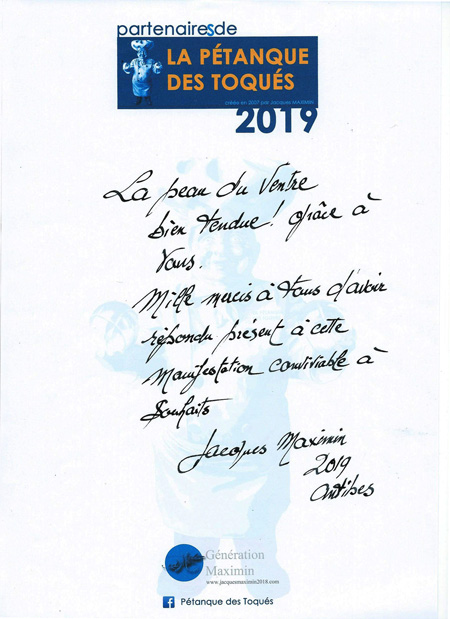 partenairesde
LA PÉTANQUE
DES TOQUÉS
créée en 2007 par Jacques MAXIMIN
2019
La peau du Ventre
bien tendue! grâce à
Vous.
Mille mercis à tous d'avoir
répondu présent à cette
Manifestation conviviable à
Souhaits
Jacques Maximin
2019
Antibes
Génération
Maximin
www.jacquesmaximin2018.com
Pétanque des Toqués